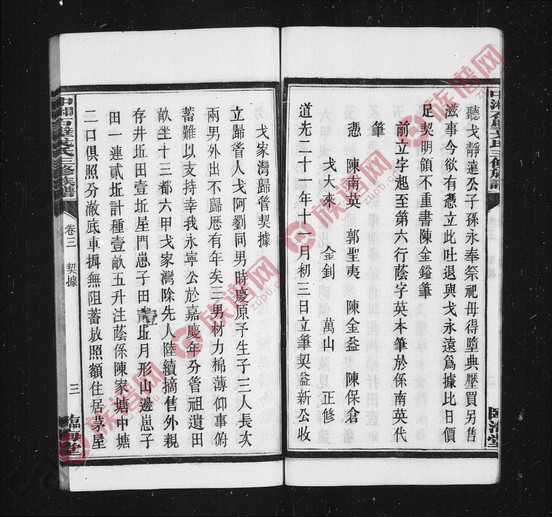 聽戈靜遠公子孫永奉祭祀毋得墾典壓買另售
滋事今欲有憑立此吐退與戈永遠為據比日價
足契明領不重書陳金鎰筆
前立字起至第六行蔭字英本筆於係南英代
筆
憑 陳南英 郭聖夷 陳金益 陳保倉
戈大來 金釗 萬山 正修
道光二十一年十一月初三日立筆契益新公收
臨海堂
戈家灣歸管契據
立歸管人戈阿劉同男時慶原子生子三人長次
兩男外出不歸歷有年矣三男材力棉薄仰事俯
蓄難以支持幸我永寧公於嘉慶年分管祖遺田
畝坐十三都六甲戈家灣除先人陸續摘售外親
存井坵田壹坵屋門崽子田壽坵月形山邊崽子
田一連貳坵計種壹畝五升注蔭係陳家塘中塘
二口俱照分澈底車揖無阻蓄放照額住居茅屋
卷三 契據
三
臨海堂
族谱网
zupu.cn